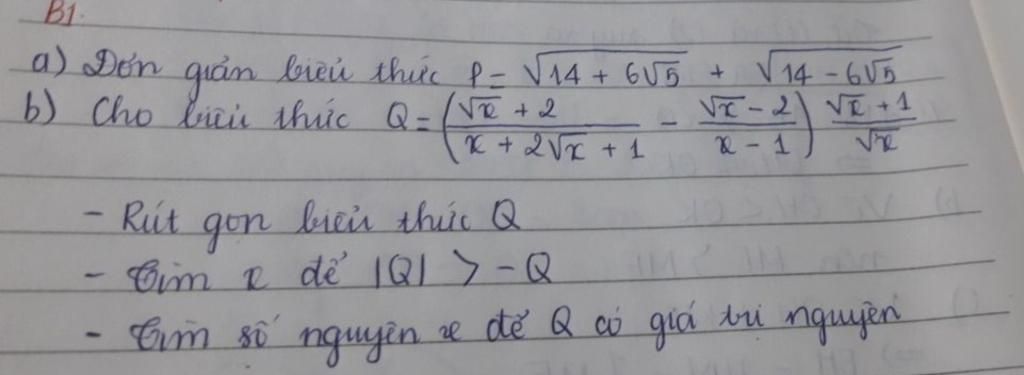 B1.
a) Đơn giản biểu thức P = √(14 + 6√5) + √(14 - 6√5)
b) Cho biểu thức Q = ((√x + 2)/(x + 2√x + 1) - (√x - 2)/(x - 1)) (√x + 1)/√x
- Rút gọn biểu thức Q
- Tìm x để |Q| > -Q
- Tìm số nguyên x để Q có giá trị nguyên